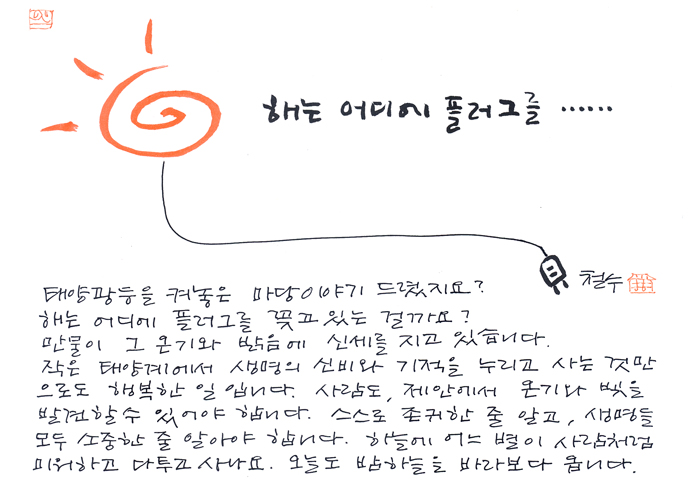 해는 어디에 플러그를 ......
철수
태양광등을 켜놓은 마당이야기 드렸지요?
해는 어디에 플러그를 꽂고 있는 걸까요?
만물이 그 온기와 밝음에 신세를 지고 있습니다.
작은 태양계에서 생명의 신비와 기적을 누리고 사는 것만
으로도 행복한 일입니다. 사람도, 제안에서 온기와 빛을
발견할수 있어야 합니다. 스스로 존귀한 줄 알고, 생명들
모두 소중한 줄 알아야 합니다. 하늘에 어느 별이 사람처럼
미워하고 다투고 사나요. 오늘도 밤하늘을 바라보다 옵니다.